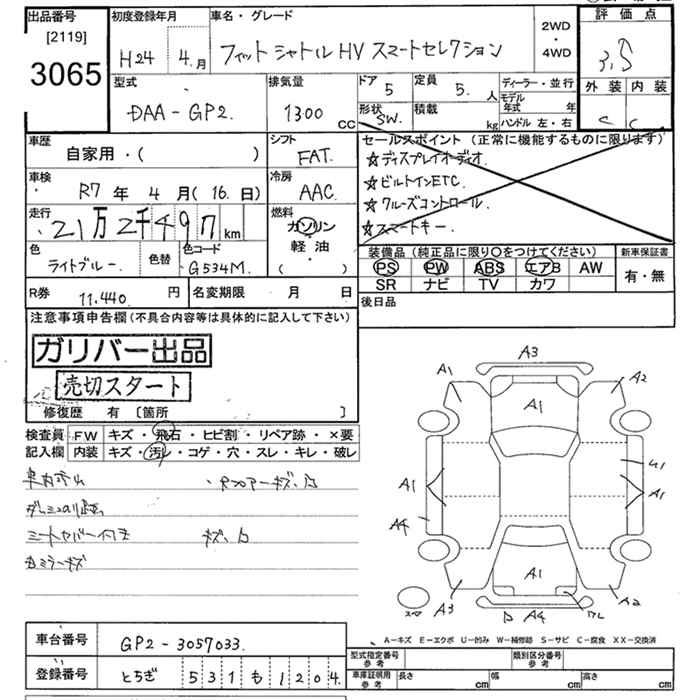 出品番号 初度登録年月 車名・グレード 2WD・4WD 評価点
[2119]
3065
H24 4.月 フィットシャトルHV スマートセレクション 3,5
型式 排気量 ドア 5 定員 5. 人 ディーラー・並行 外装 内装
DAA-GP2. 1300 cc 形状 SW. 積載 kg モデル年式 年 C C
ハンドル 左・右
車歴 自家用・( ) シフト FAT. セールスポイント (正常に機能するものに限ります)
☆ディスプレイオーディオ.
車検 R7 年 4 月(16.日) 冷房 AAC. ☆ビルトインETC.
☆クルーズコントロール.
走行 21万2千497 km 燃料 ガソリン・軽油・( ) ☆スマートキー.
色 ライトブルー. 色替 色コード G534M. 装備品 (純正品に限り〇をつけてください) 新車保証書
PS PW ABS エアB AW 有・無
SR ナビ TV カワ
R券 11.440. 円 名変期限 月 日 後日品
注意事項申告欄(不具合内容等は具体的に記入して下さい)
ガリバー出品
売切スタート
修復歴 有 〔箇所 〕
検査員記入欄 FW キズ・飛石・ヒビ割・リペア跡・×要
内装 キズ・汚レ・コゲ・穴・スレ・キレ・破レ
A3
A1 A1 A2
A1 A1
A4
A1
A3 A4 A2
A-キズ E-エクボ U-凹み W-補修跡 S-サビ C-腐食 XX-交換済
車台番号 GP2-3057033.
登録番号 とちぎ 531も1204
型式指定番号 参考 類別区分番号 参考
車庫証明用 参考 長さ cm 幅 cm 高さ cm